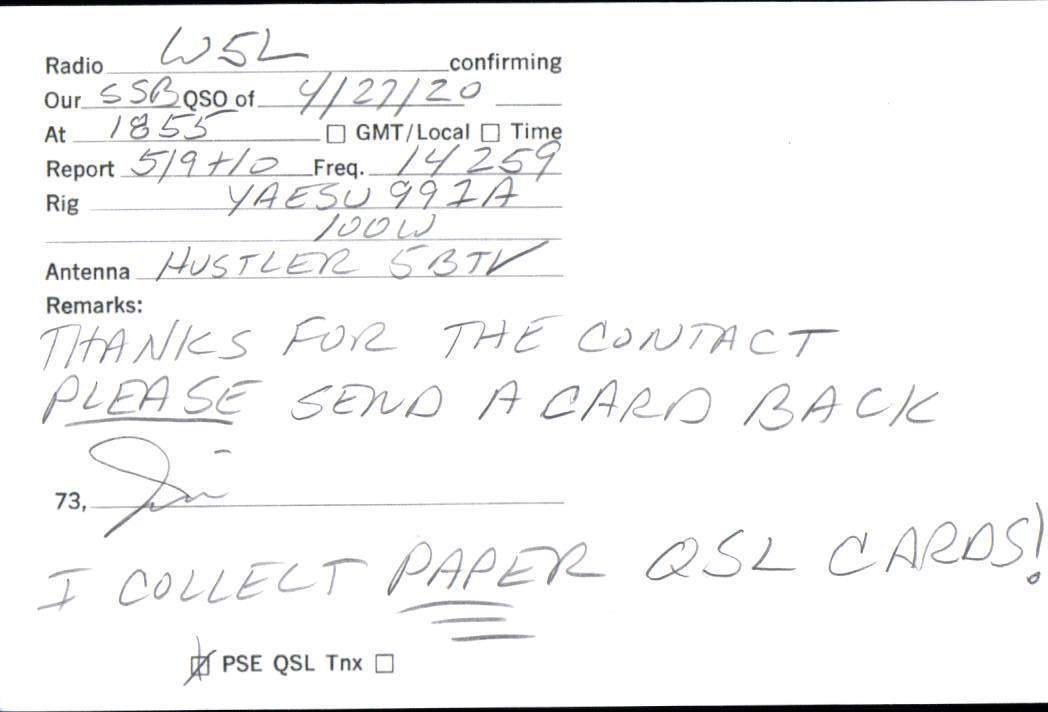 Radio W5L confirming
Our SSB QSO of 4/27/20
At 1855 ☐ GMT/Local ☐ Time
Report 5/9+10 Freq. 14259
Rig YAESU 991A
100W
Antenna HUSTLER 5BTV
Remarks:
THANKS FOR THE CONTACT
PLEASE SEND A CARD BACK
73, Jim
I COLLECT PAPER QSL CARDS!
☒ PSE QSL Tnx ☐